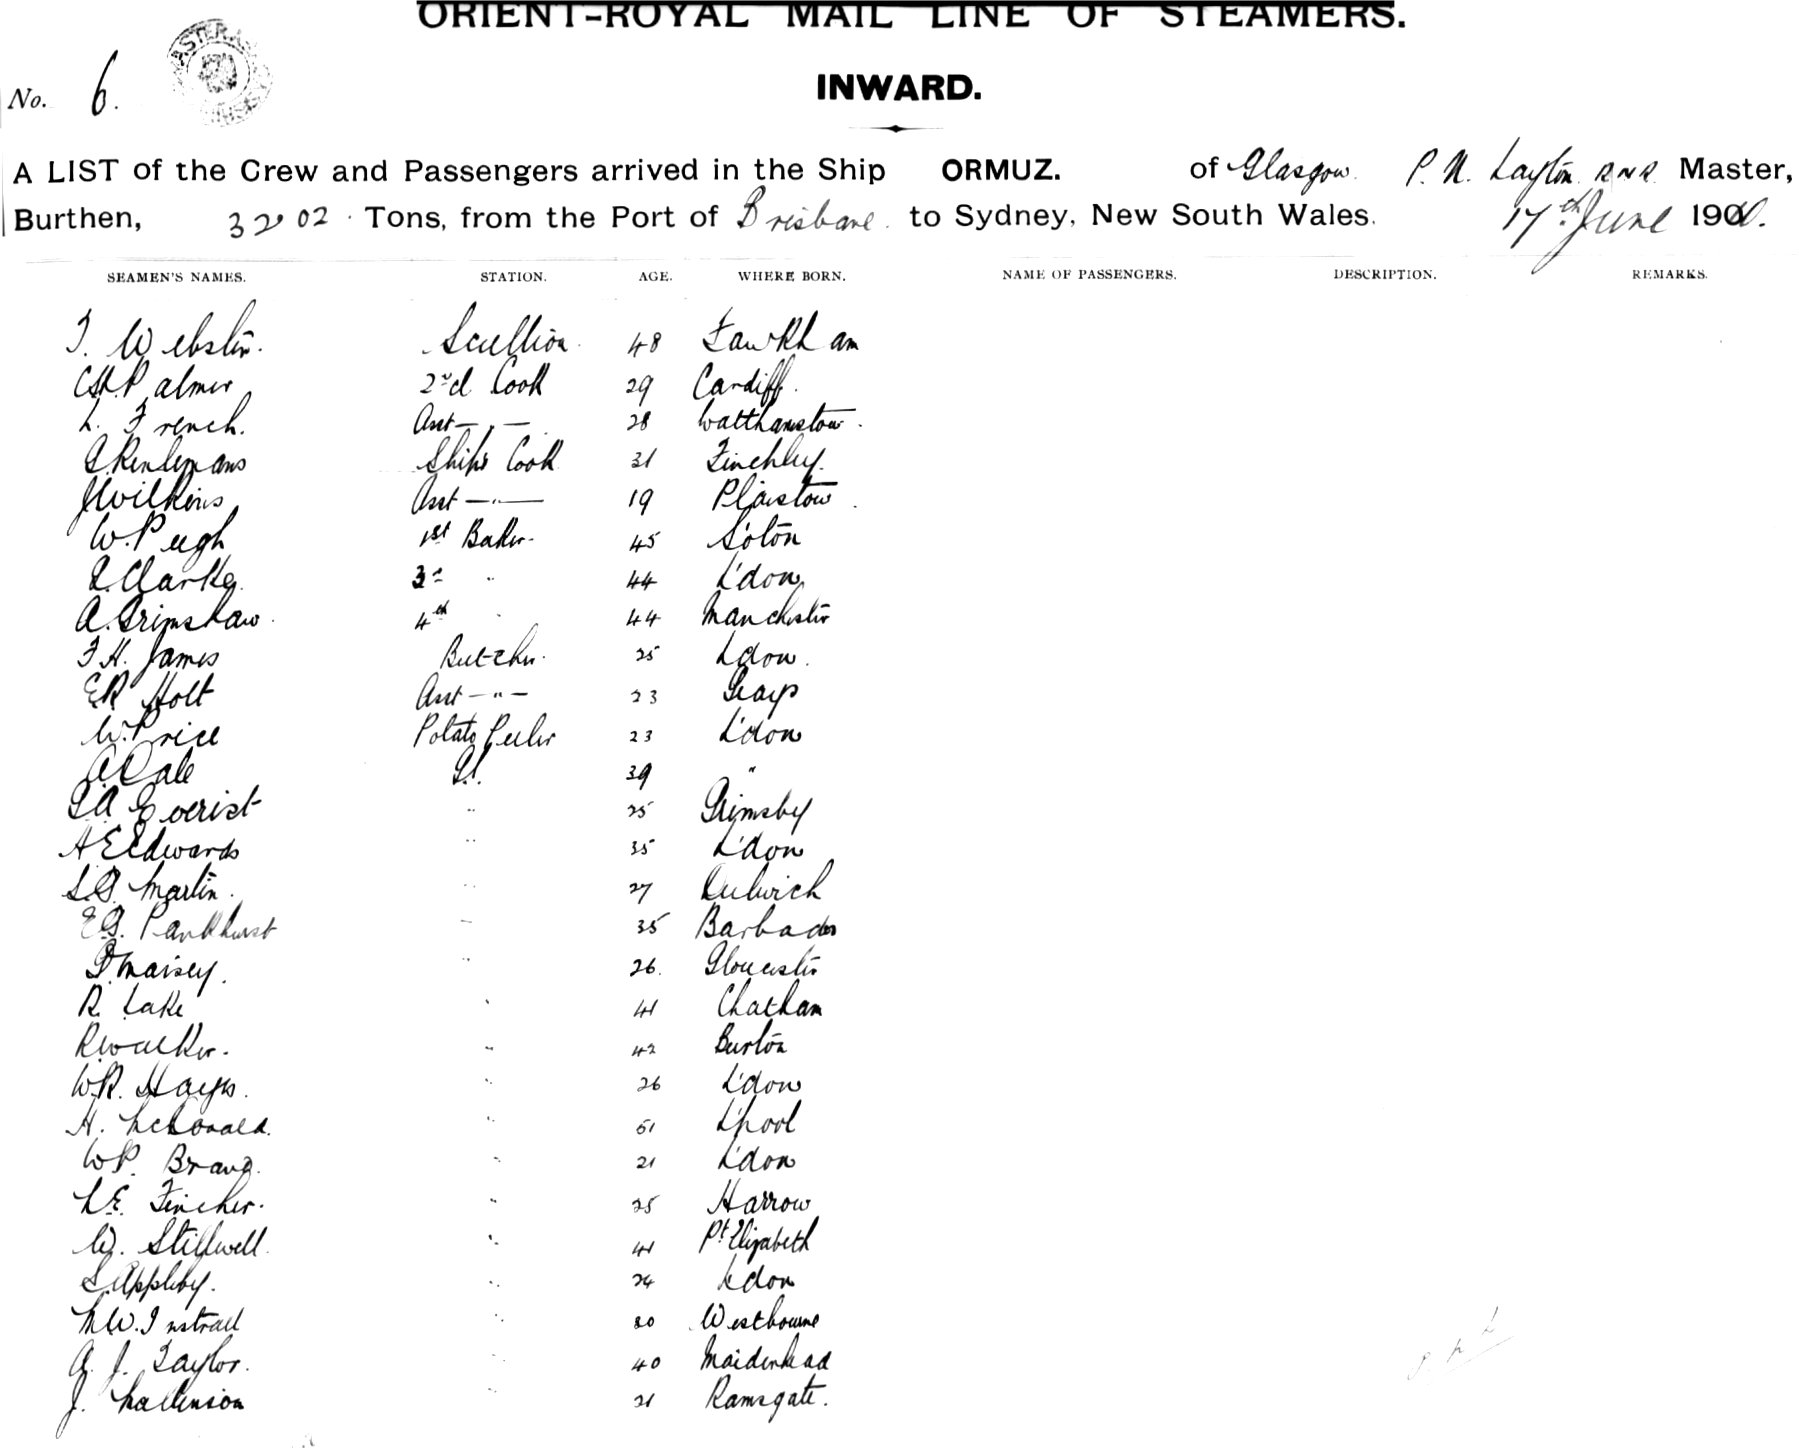 ORIENT-ROYAL MAIL LINE OF STEAMERS.
No. 6.
INWARD.
A LIST of the Crew and Passengers arrived in the Ship ORMUZ. of Glasgow. P. N. Layton R N R Master,
Burthen, 3202 Tons, from the Port of Brisbane. to Sydney, New South Wales. 17th June 190
SEAMEN'S NAMES. STATION. AGE. WHERE BORN. NAME OF PASSENGERS. DESCRIPTION. REMARKS.
T. Webster. Scullion. 48 Fawkham
Palmer 2nd Cook 29 Cardiff.
L. French. Asst — " — 28 Walthamstow.
Ship's Cook 31 Finchley.
J Wilkins Asst — " — 19 Plaistow.
W. Pugh 1st Baker. 45 S'oton
Clarke. 3rd " 44 L'don
A. Grimshaw. 4th " 44 Manchester
F H. James Butcher. 25 Ldon.
ER Holt Asst — " — 23 Grays
W. Price Potato Peeler 23 L'don
A Dale 39 "
Everist " 25 Grimsby
A E Edwards " 35 L'don
S.G. Martin. " 27 Dulwich
E G. Pankhurst " 35 Barbados
Maisey. " 26. Gloucester
R. Lake " 41 Chatham
R. Walker. " 42 Burton
W.R. Hayes. " 26 L'don
H. McDonald. " 51 L'pool
W P. Brand. " 21 L'don
L E. Fincher. " 25 Harrow
W. Stillwell. " 41 Pt Elizabeth
S. Appleby. " 24 Ldon
M W. Instrall " 20 Westbourne
A. J. Taylor. " 40 Maidenhead
J. Mallinson " 21 Ramsgate.